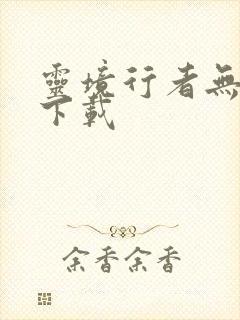 靈境行者無
下載
余香余香